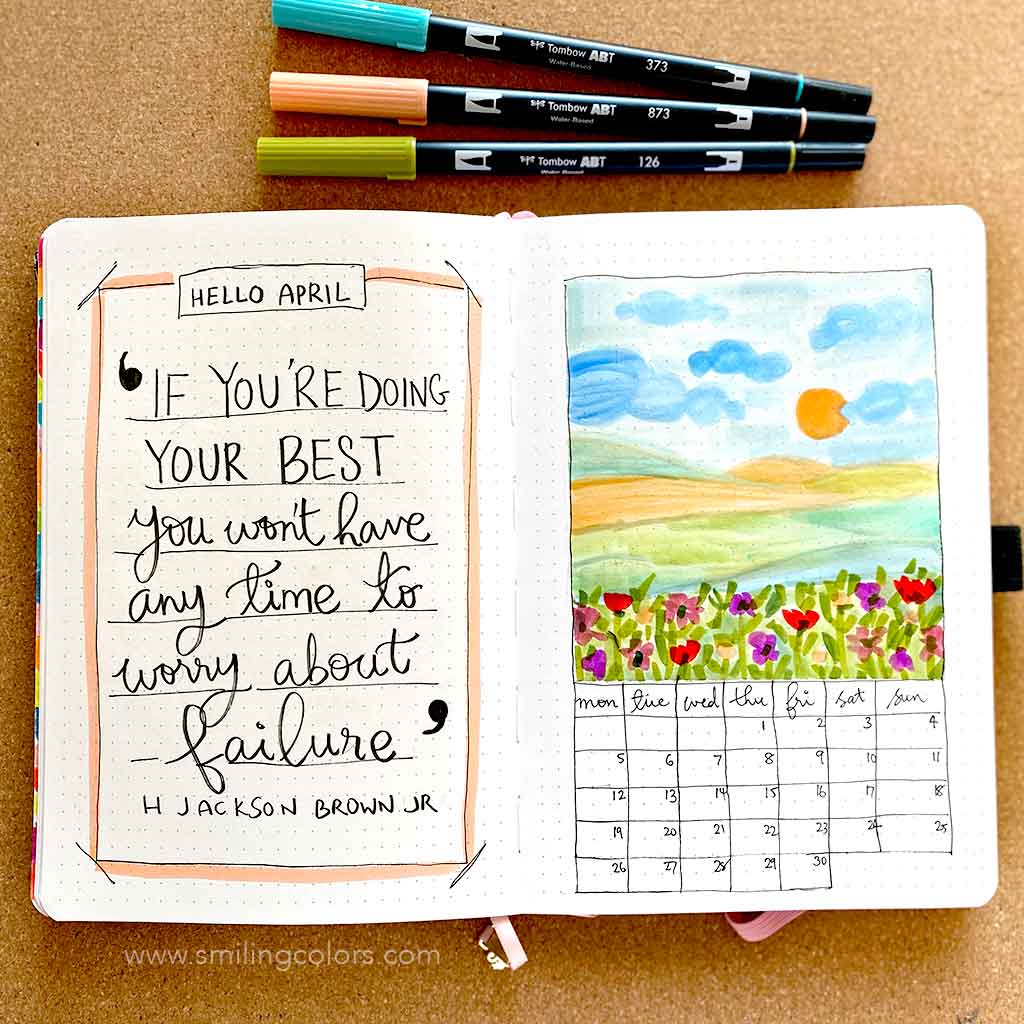 Tombow ABT 373
Water-Based
Tombow ABT 873
Water-Based
Tombow ABT 126
Water-Based
HELLO APRIL
‘IF YOU'RE DOING
YOUR BEST
you won't have
any time to
worry about
failure’
H JACKSON BROWN JR
mon tue wed thu fri sat sun
1 2 3 4
5 6 7 8 9 10 11
12 13 14 15 16 17 18
19 20 21 22 23 24 25
26 27 28 29 30
www.smilingcolors.com